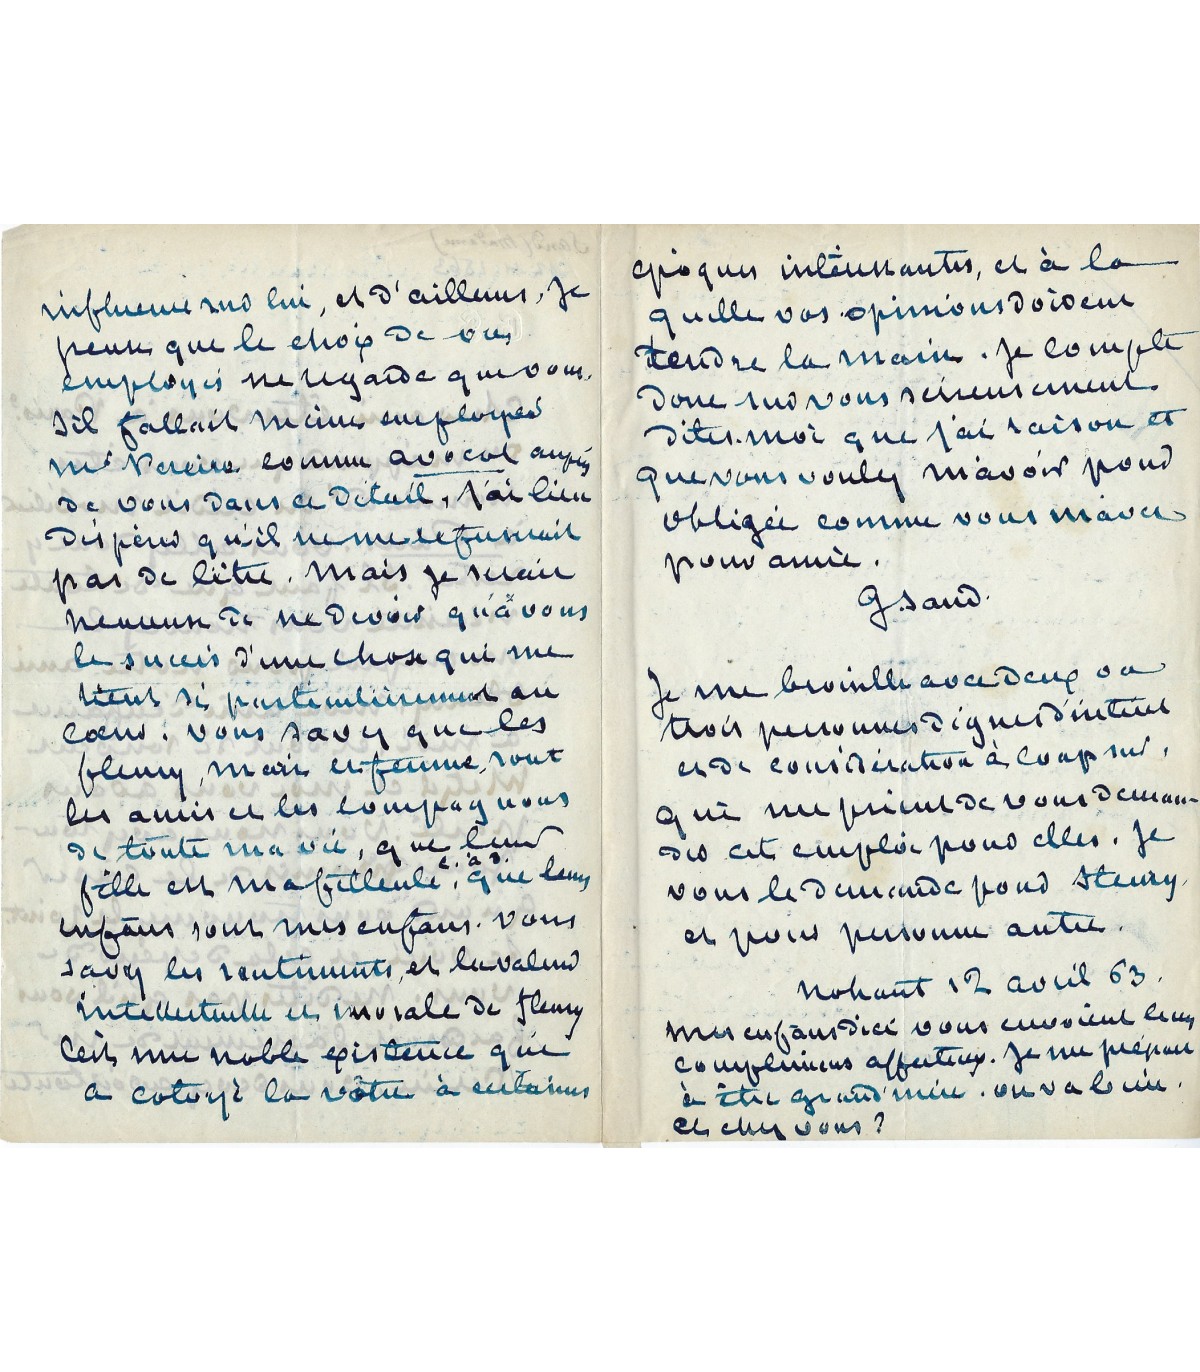 influence sur lui, et d'ailleurs, je
pense que le choix de vos
employés ne regarde que vous.
S'il fallait même employer
Mr Pereire comme avocat auprès
de vous dans ce détail, j'ai lieu
d'espérer qu'il ne me refuserait
pas de l'être. Mais je serais
heureuse de ne devoir qu'à vous
le succès d'une chose qui me
tient si particulièrement au
cœur: vous savez que les
fleury, mari et femme, sont
les amis et les compagnons
de toute ma vie, que leur
fille est ma filleule, c. à. d. que leurs
enfans sont mes enfans. Vous
savez les sentiments, et la valeur
intellectuelle et morale de fleury
C'est une noble existence qui
a cotoyé la vôtre à certaines
époques intéressantes, et à la
quelle vos opinions doivent
tendre la main. Je compte
donc sur vous sérieusement
dites-moi que j'ai raison et
que vous voulez m'avoir pour
obligée comme vous m'avez
pour amie.
G. Sand.
Je me brouille avec deux ou
trois personnes dignes d'intérêt
et de considération à coup sur,
qui me prient de vous deman-
der cet emploi pour elles. Je
vous le demande pour fleury,
et pour personne autre.
Nohant 12 avril 63.
Mes enfans d'ici vous envoient leurs
complimens affectueux. Je me prépare
à être grand'mère. on va bien.
et chez vous?